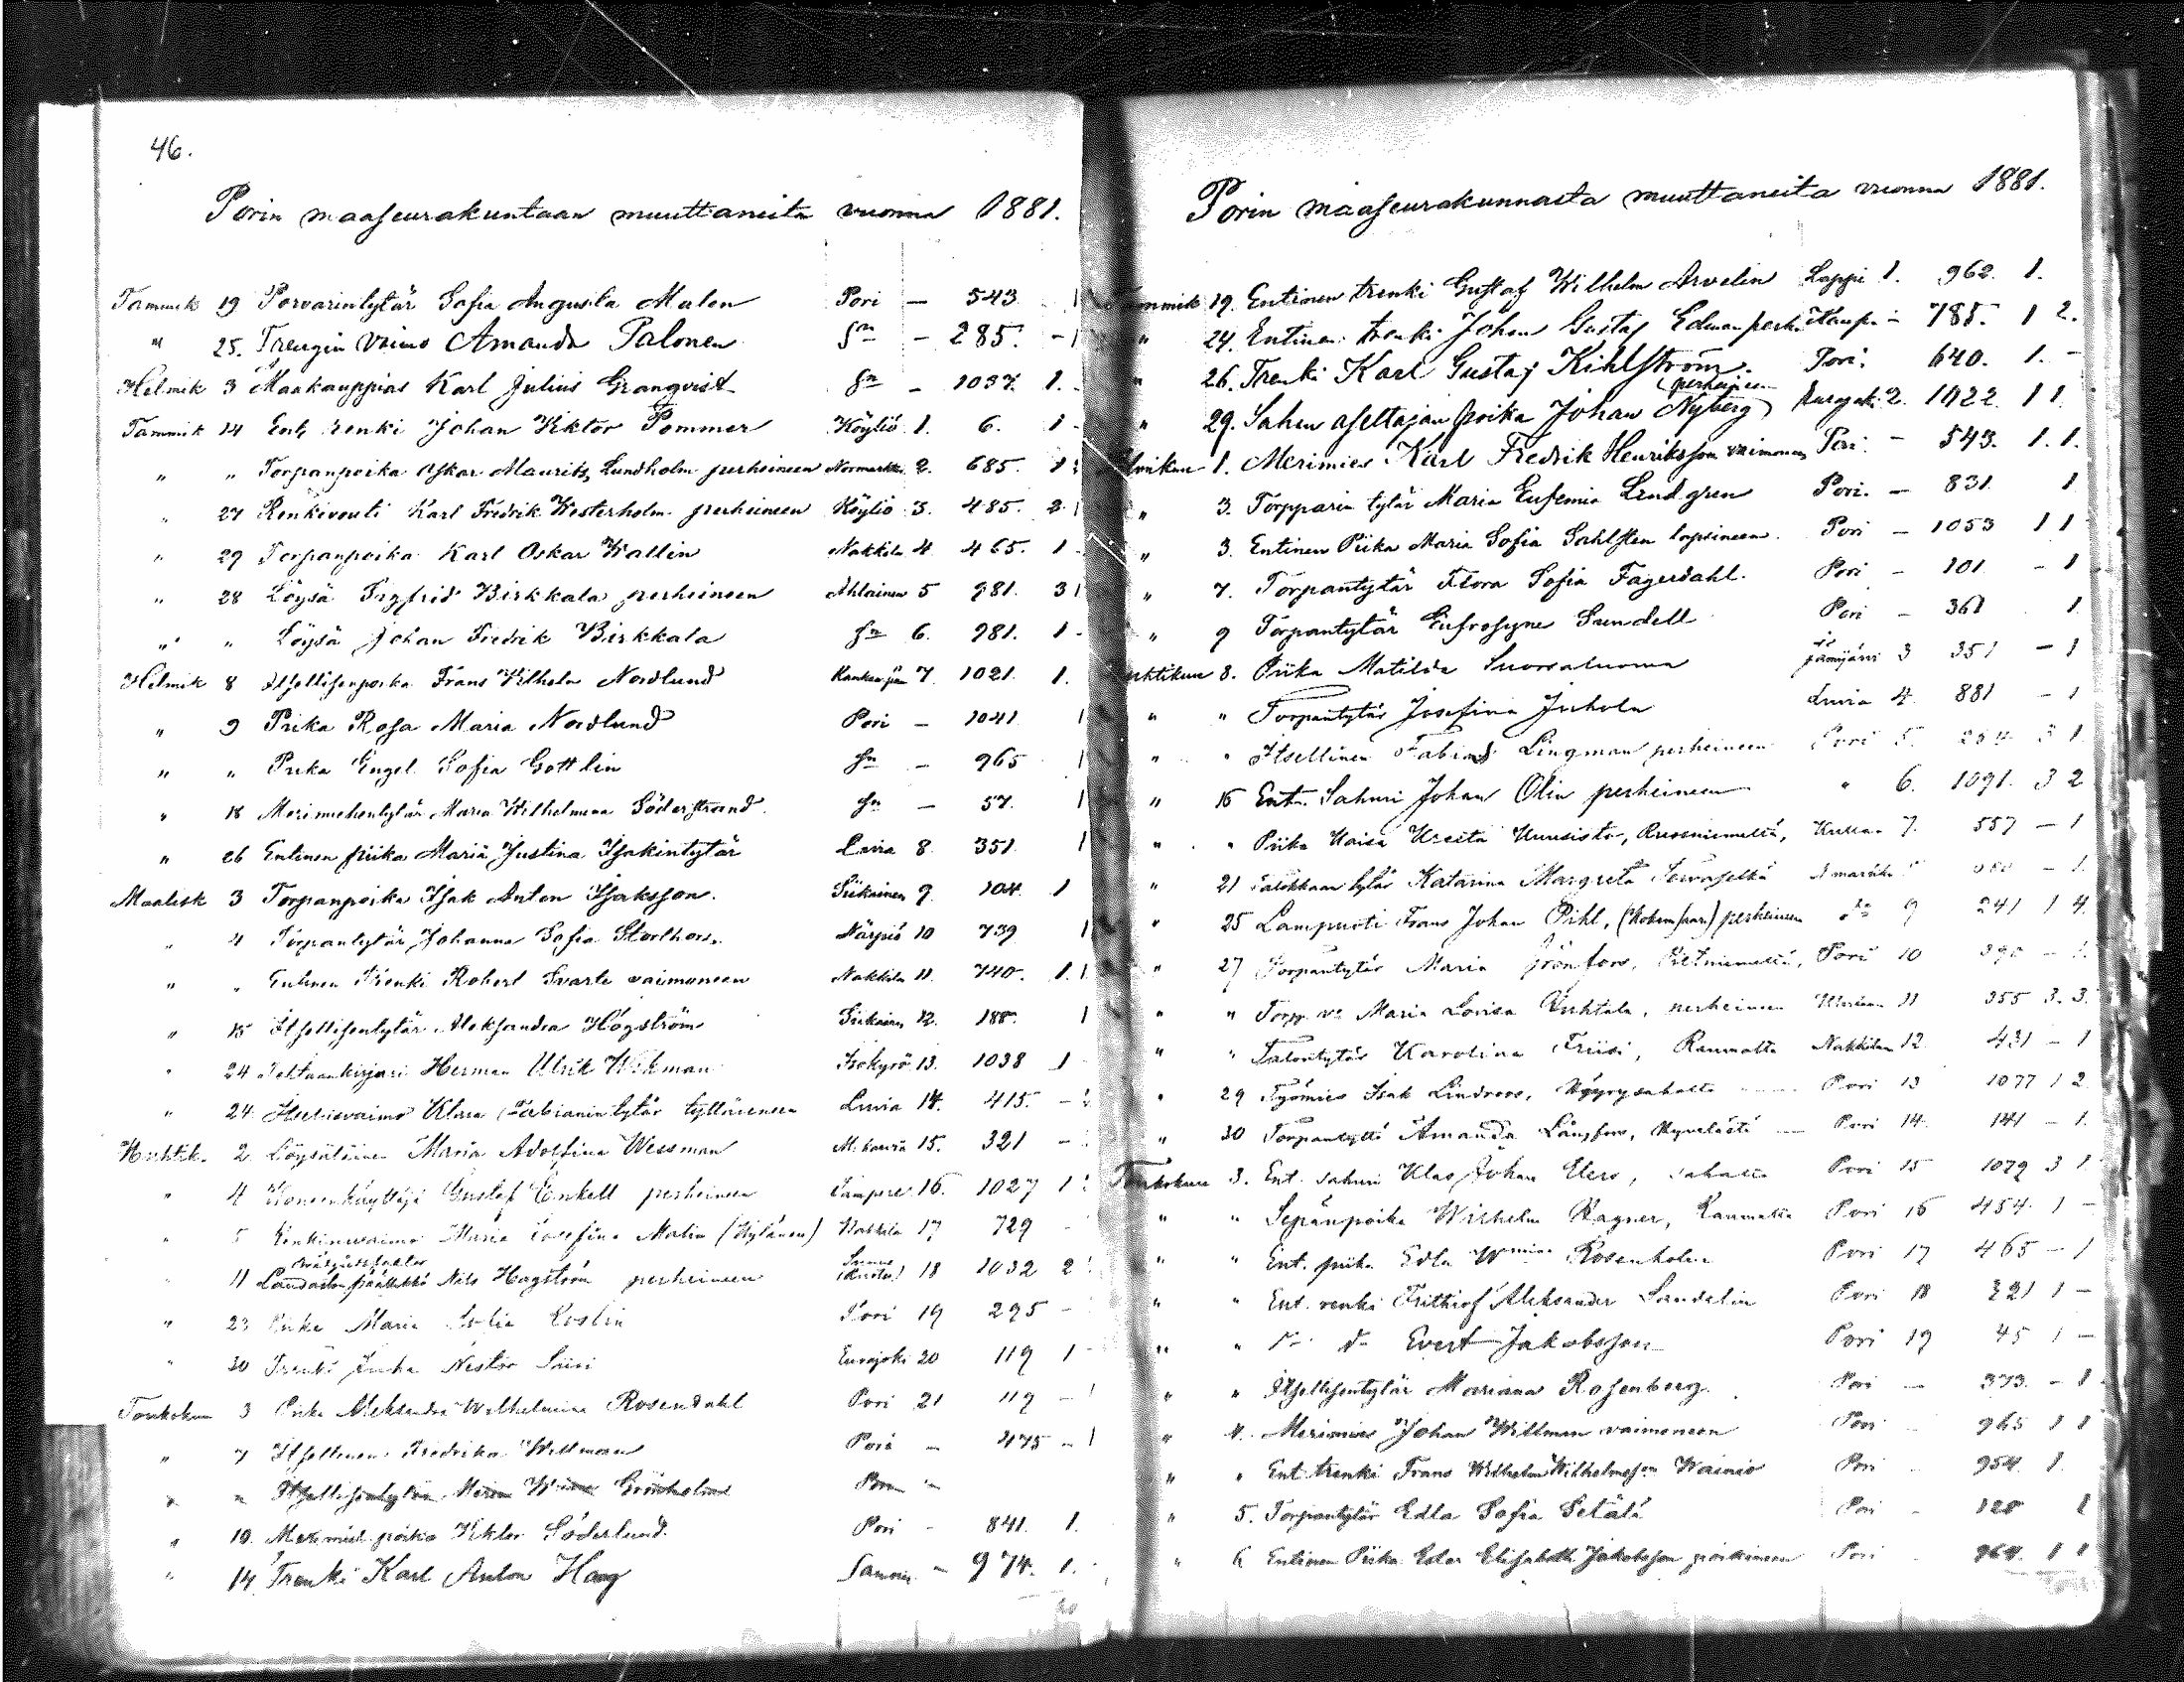 46.
Porin maaseurakuntaan muuttaneita vuonna 1881.
Tammik 19 Porvarintytär Sofia Augusta Malen Pori — 543 1
" 25. Trengin vaimo Amanda Palonen Sn — 285. - 1
Helmik 3 Maakauppias Karl Julius Granqvist Sn — 1037. 1. -
Tammik 14 Ent. renki Johan Viktor Pommer Köyliö 1. 6. 1 -
" " Torpanpoika Oskar Maurits Lundholm perheineen Normarkku 2. 685. 1
" 27 Renkivouti Karl Fredrik Westerholm perheineen Köyliö 3. 485. 2. 1
" 29 Torpanpoika Karl Oskar Wallin Nakkila 4. 465. 1 -
" 28 Löysä Sigfrid Birkkala perheineen Ahlainen 5 981. 3 1
" " Löysä Johan Fredrik Birkkala Sn 6. 981. 1 -
Helmik 8 Itsellisenpoika Frans Vilhelm Nordlund Kankaanpää 7. 1021. 1.
" 9 Piika Rosa Maria Nordlund Pori — 1041 1
" " Piika Engel Sofia Gottlin Sn — 965 1
" 18 Merimiehentytär Maria Wilhelmina Söderstrand Sn — 57. 1
" 26 Entinen piika Maria Justina Isakintytär Lavia 8. 351. 1
Maalisk 3 Torpanpoika Isak Anton Isaksson. Siikainen 9. 104. 1
" 4 Torpantytär Johanna Sofia Närpiö 10 739 1
" " Entinen Trenki Robert Svarte vaimoneen Nakkila 11. 740. 1. 1.
" 15 Itsellisentytär Aleksandra Högström Siikainen 12. 188. 1
" 24 Herman Ulrik Wikman Isokyrö 13. 1038 1
" 24 Klara Fabianintytär tyttärineen Luvia 14. 415. -
Huhtik. 2. Löysäläinen Maria Adolfina Wessman M. karvia 15. 321 -
" 4 Koneenkäyttäjä Gustaf Enkell perheineen Tampere 16. 1027 1
" 5 Renkinvaimo Maria Josefina Malin Nakkila 17 729 -
" 11 päällikkö Nils Hagström perheineen 18 1032 2
" 23 Piika Maria Sofia Roslin Pori 19 295 -
" 30 Trenki Juha Nestor Eurajoki 20 119 1
Toukokuu 3 Piika Aleksandra Wilhelmina Rosendahl Pori 21 119 - 1
" 7 Itsellinen Fredrika Wellman Pori — 475 - 1
" " Itsellisentytär Grönholm
" 10. Merimieh. poika Viktor Söderlund. Pori - 841. 1.
" 14. Trenki Karl Anton Haag — 974. 1.
Porin maaseurakunnasta muuttaneita vuonna 1881.
Tammik 19. Entinen trenki Gustaf Wilhelm Arvelin Lappi 1. 962. 1.
" 24. Entinen trenki Johan Gustaf Edman perh. Kaupu - 785. 1 2.
" 26. Trenki Karl Gustaf Kihlström. Pori. 640. 1. -
" 29. Sahen asettajan poika Johan Nyberg perheineen 2. 1022. 1 1.
Helmikuu 1. Merimies Karl Fredrik Henriksson vaimoneen Pori - 543. 1. 1.
" 3. Torpparin tytär Maria Eufemia Lindgren Pori. — 831. 1
" 3. Entinen Piika Maria Sofia Sahlsten lapsineen. Pori — 1053 1 1
" 7. Torpantytär Flora Sofia Fagerdahl. Pori - 101. - 1
" 9 Torpantytär Eufrosyne Sundell Pori - 361 1.
Huhtikuu 8. Piika Matilda Suovaluoma Jämijärvi 3 351 — 1
" " Torpantytär Josefina Juhola Luvia 4 881 - 1
" " Itsellinen Fabian Lingman perheineen Pori 5. 254. 3 1
" 15 Ent. Sahuri Johan Olin perheineen " 6. 1091. 3 2
" " Piika Kaisa Kreeta Uunisto, Ruosniemeltä, Kullaa 7. 557 — 1
" 21 tytär Katarina Margreta - 1.
" 25 Lampuoti Frans Johan Pihl, perheineen dn 9 241 1 4.
" 27 Torpantytär Maria Grönfors, Pori 10 - 1.
" " Torp. va Maria Lovisa Ruhtala, perheineen 11 355 3. 3.
" " Talontytär Karolina Friisi, Raumalta Nakkilan 12. 431 — 1
" 29 Työmies Isak Lindroos, Pori 13 1077 1 2
" 30 Torpantyttö Amanda Långfors, Kyvelästä — Pori 14. 141 — 1.
Toukokuu 3. Ent. sahuri Klas Johan Elers, sahalta Pori 15 1079 3 1.
" " Sepänpoika Wilhelm Wagner, Raumalta Pori 16 454. 1 -
" " Ent. piika Edla Wmina Rosenholm Pori 17 465 — 1
" " Ent. renki Frithiof Aleksander Sandelin Pori 18 221 1 —
" " dn dn Evert Jakobsson Pori 19 45 1 —
" " Itsellisentytär Mariana Rosenberg. Pori — 373. - 1.
" 4. Merimies Johan Willman vaimoneen Pori 965 1 1
" " Ent. trenki Frans Wilhelm Wilhelmsson Wainio Pori 954. 1.
" 5. Torpantytär Edla Sofia Setälä Pori - 120 1
" 6 Entinen Piika Edla Elisabeth Jakobsson poikineen Pori 964. 1 1